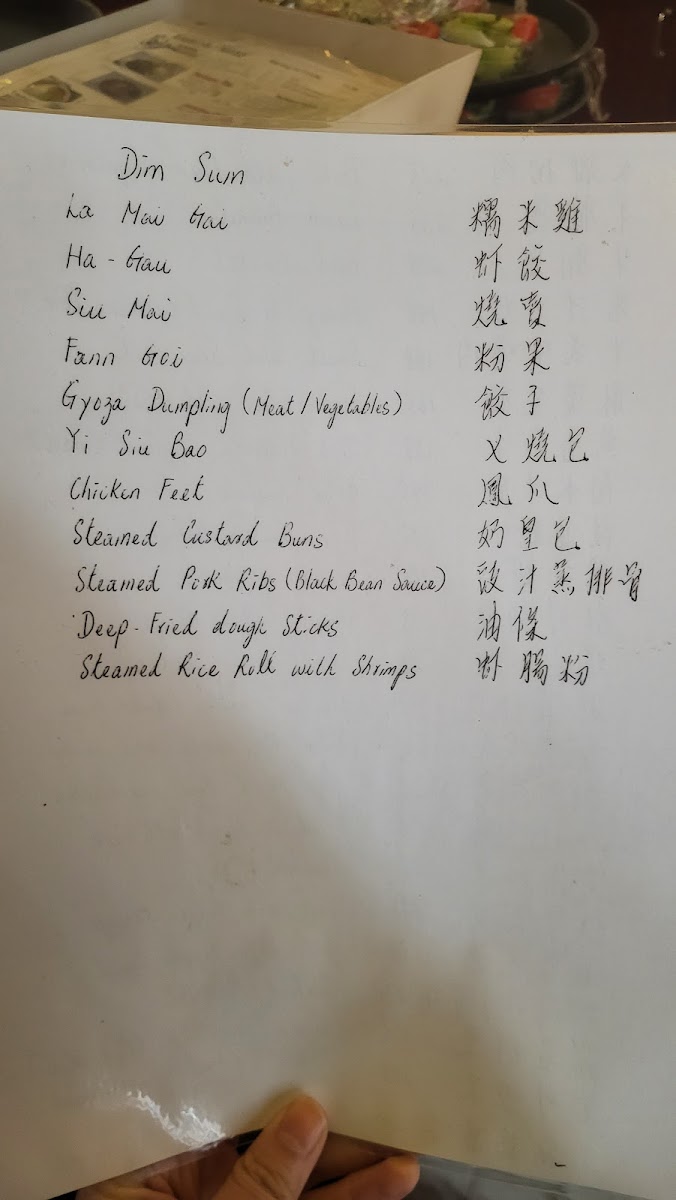 Dim Sum
Lo Mai Gai 糯米雞
Ha-Gau 虾餃
Siu Mai 燒賣
Fann Goi 粉果
Gyoza Dumpling (Meat/Vegetables) 餃子
Yi Siu Bao 乂燒包
Chicken Feet 鳳爪
Steamed Custard Buns 奶皇包
Steamed Pork Ribs (Black Bean Sauce) 豉汁蒸排骨
Deep-Fried dough Sticks 油條
Steamed Rice Roll with Shrimps 虾腸粉